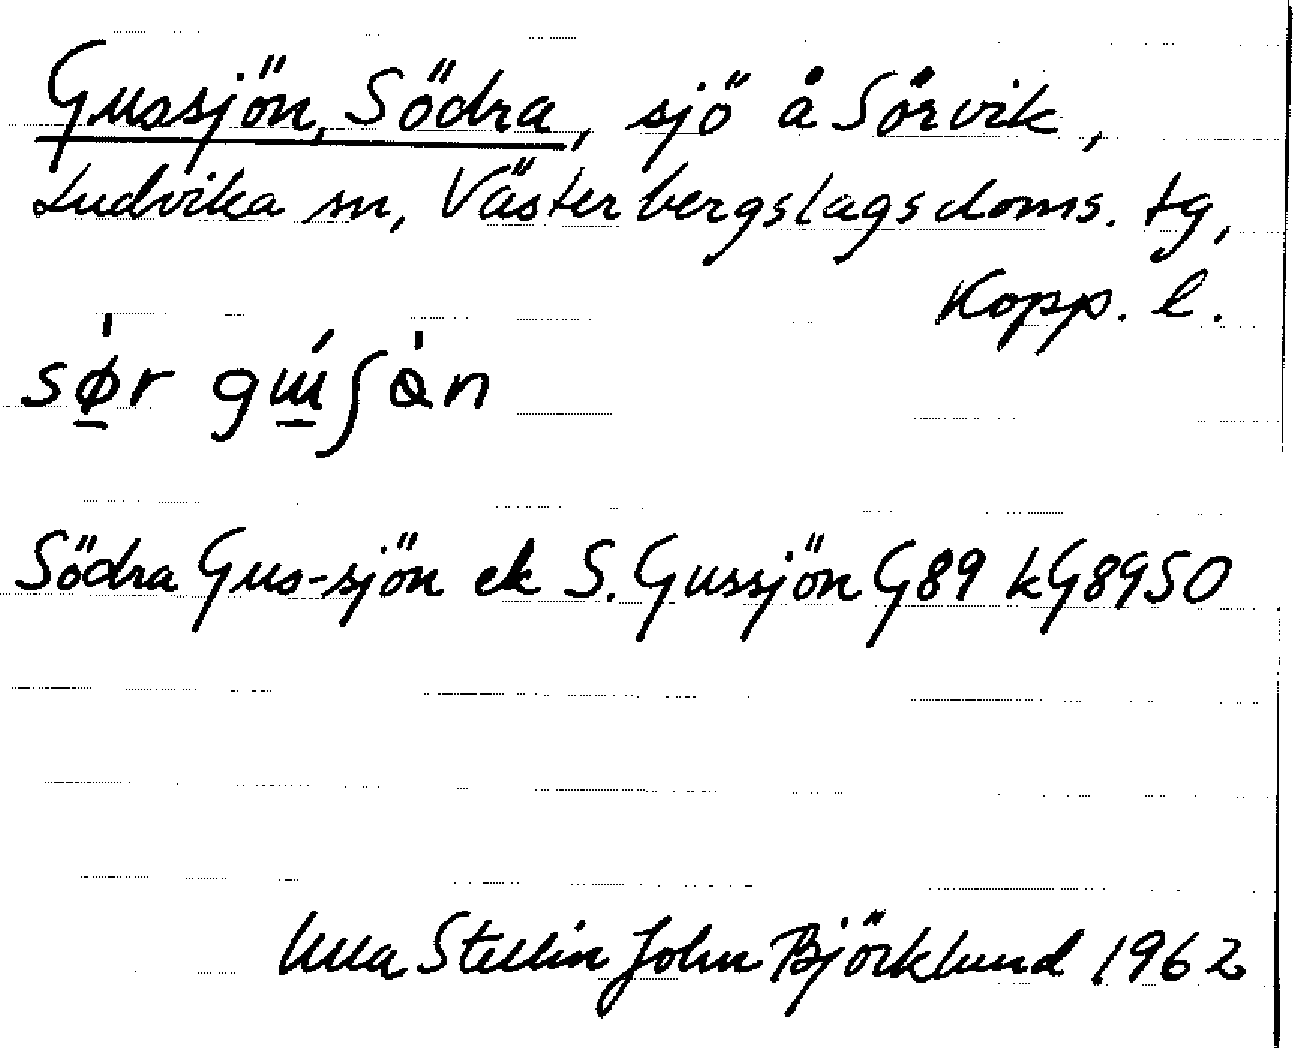 Gussjön, Södra, sjö å Sörvik,
Ludvika sn, Västerbergslags doms. tg,
Kopp. l.
Södra Gus-sjön ek S. Gussjön G89 kG8950
Ulla Stellin John Björklund 1962